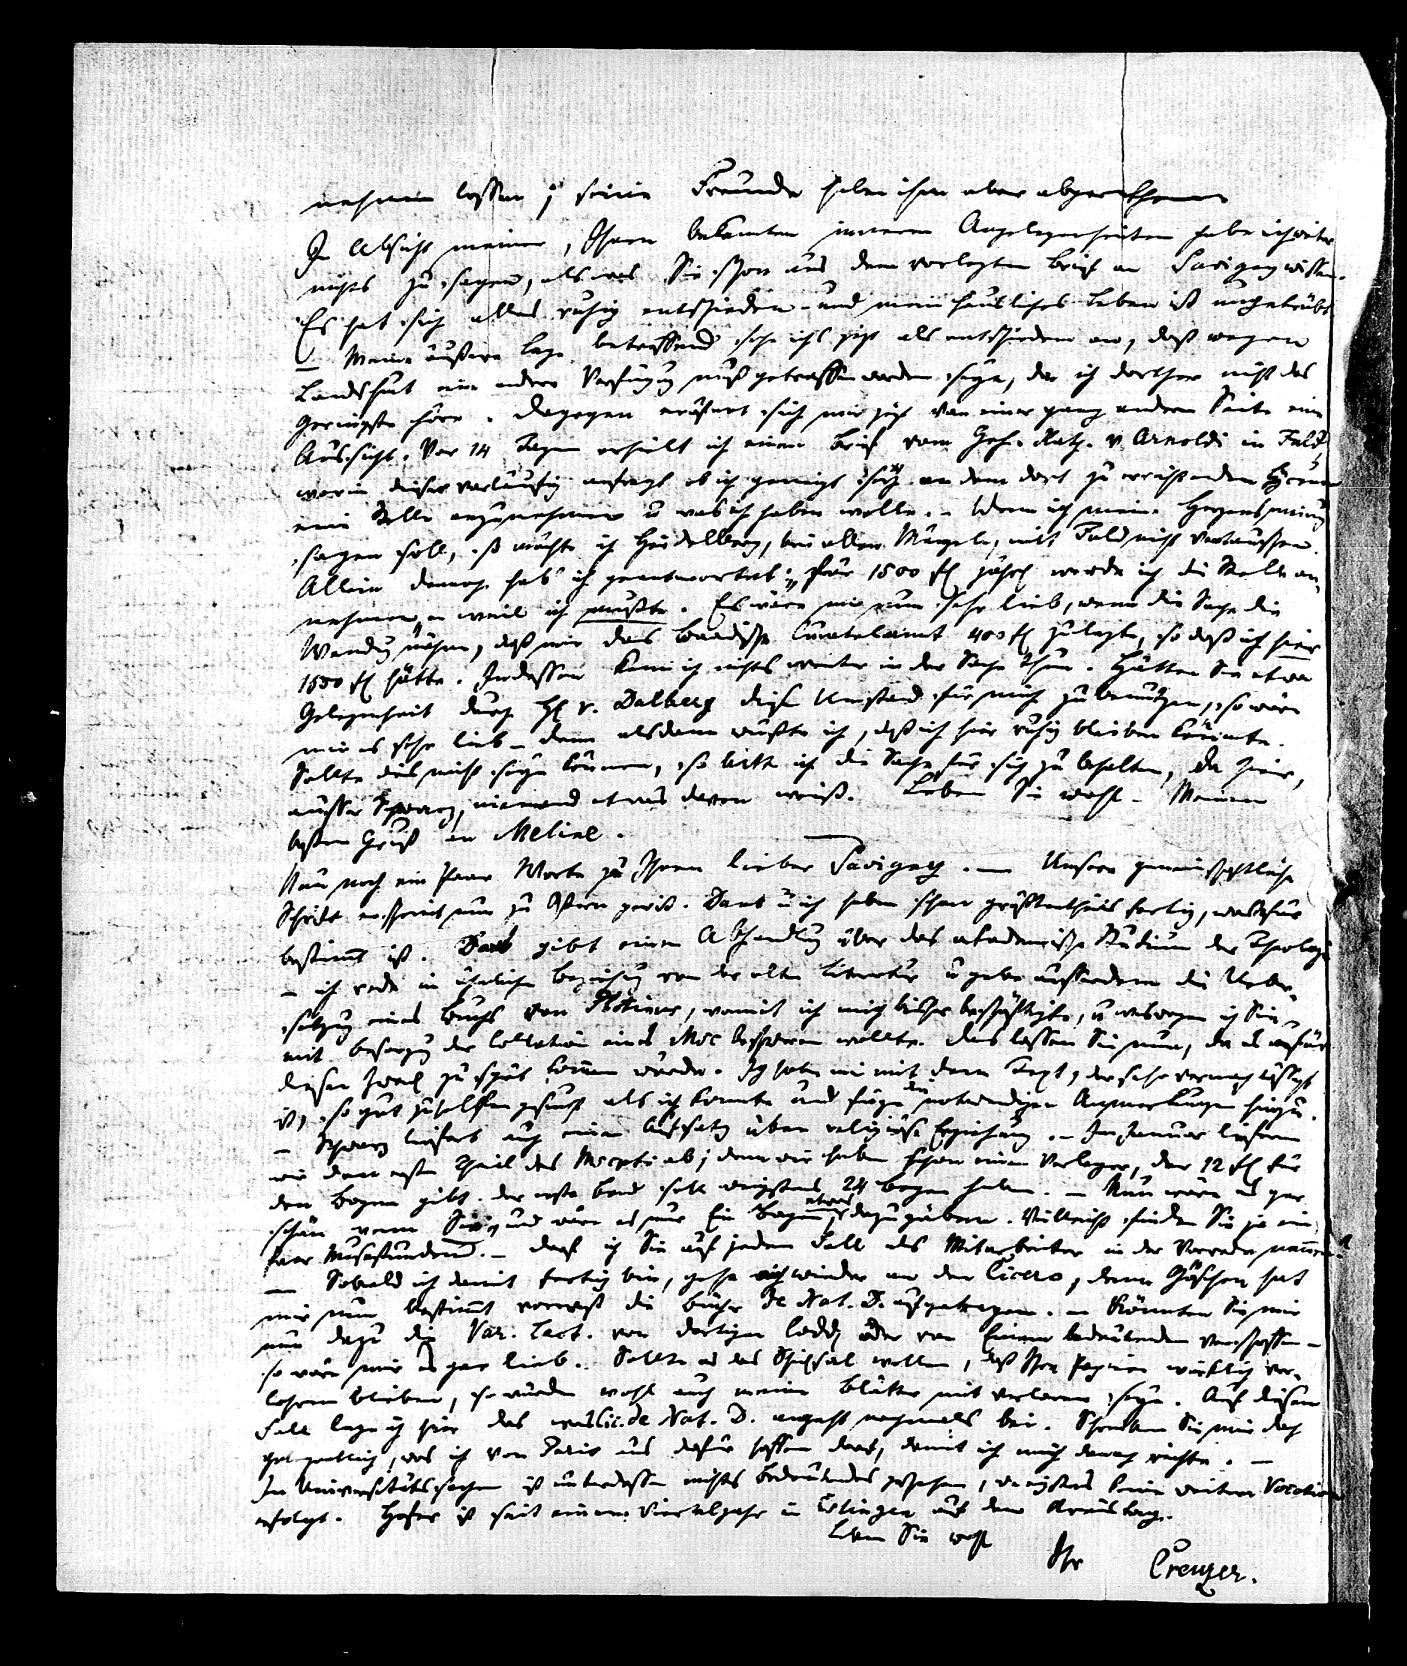 nehmen lassen; seine Freunde haben ihm aber abgerathen.
In Absicht meiner, Ihnen bekannten inneren Angelegenheiten habe ich weiter
nichts zu sagen, als was Sie schon aus dem vorlezten Brief an Savigny wissen.
Es hat sich alles ruhig entschieden und mein häusliches Leben ist ungetrübt.
— Meine äußere Lage betreffend sehe ichs jezt als entschieden an, daß wegen
Landshut eine andere Verfügung muß getroffen worden seyn, da ich dorther nicht das
Geringste höre. Dagegen eröfnet sich mir jezt von einer ganz andern Seite eine
Aussicht. Vor 14 Tagen erhielt ich einen Brief vom Geh. Rath v. Arnoldi in Fuld,
worin dieser vorläufig anfragt ob ich geneigt sey an dem dort zu errichtenden
eine Stelle anzunehmen u was ich haben wolle. — Wenn ich meine Herzensmeinung
sagen soll, so möchte ich Heidelberg, bei allen Mängeln, mit Fuld nicht vertauschen.
Allein dennoch hab ich geantwortet: „für 1500 fl jährl werde ich die Stelle an„
nehmen„ weil ich mußte. Es wäre mir nun sehr lieb, wenn die Sache die
Wendung nähme, daß mir das Badische Curatelamt 400 fl zulegte, so daß ich hier
1500 fl hätte. Indessen kann ich nichts weiter in der Sache thun. Hätten Sie etwa
Gelegenheit durch H v. Dalberg diesen Umstand für mich zu benutzen, so wäre
mir es sehr lieb — denn alsdann wüßte ich, daß ich hier ruhig bleiben könnte.
Sollte dies nicht seyn können, so bitte ich die Sache für sich zu behalten, da hier,
ausser Schwarz, niemand etwas davon weiß. Leben Sie wohl — Meinen
besten Gruß an Meline.
Nun noch ein Paar Worte zu Ihnen lieber Savigny. — Unsere gemeinschaftliche
Schrift erscheint nun zu Ostern gewiß. Daub u ich haben schon größtentheils fertig, was dafür
bestimmt ist. Daub gibt eine Abhandlung über das akademische Studium der Theologie
— ich rede in ähnlicher Beziehung von der alten Literatur u gebe ausserdem die Ueber-
setzung eines Buchs von Plotinus, womit ich mich bisher beschäftigte, u weswegen ich Sie
mit Besorgung der Collation eines Msc beschweren wollte. Das lassen Sie nun, da es für
diesen Zweck zu spät kommen würde. Ich habe mir mit dem Text, der sehr vernachlässigt
ist, so gut zu helfen gesucht als ich konnte und füge die notwendigen Anmerkungen hinzu.
— Schwarz liefert auch einen Aufsatz über religiöse Erziehung. — Im Januar liefern
wir den ersten Theil des Mscpts ab; denn wir haben schon einen Verleger, der 12 fl für
den Bogen gibt. Der erste Band soll wenigstens 24 Bogen haben. — Nun wäre es gar
schön wenn Sie, und wäre es nur Ein Bogen, etwas dazu gäben. Vielleicht finden Sie ja ein
Paar Musestunden. — Darf ich Sie auf jeden Fall als Mitarbeiter in der Vorrede nennen?
— Sobald ich damit fertig bin, gehe ich wieder an den Cicero, denn Göschen hat
mir nun bestimmt vorerst die Bücher de Nat. D. aufgetragen. — Könnten Sie mir
nun dazu die Var. Lect. von dortigen Codd, oder von Einem bedeutenden verschaffen —
so wäre mir es gar lieb. Sollte es das Schicksal wollen, daß Ihre Papiere wirklich ver-
lohren blieben, so würden wohl auch meine Blätter mit verloren seyn. Auf diesen
Fall lege ich hier das was Cic. de Nat. D. angeht nochmals bei. Schreiben Sie mir doch
gelegentlich, was ich von Paris aus dafür hoffen darf, damit ich mich darnach richte. —
In Universitätssachen ist unterdessen nichts Bedeutendes geschehen, wenigstens keine weitere Vocation
erfolgt. Hofer ist seit einem Vierteljahr in auf dem
Leben Sie wohl
Ihr Creuzer.